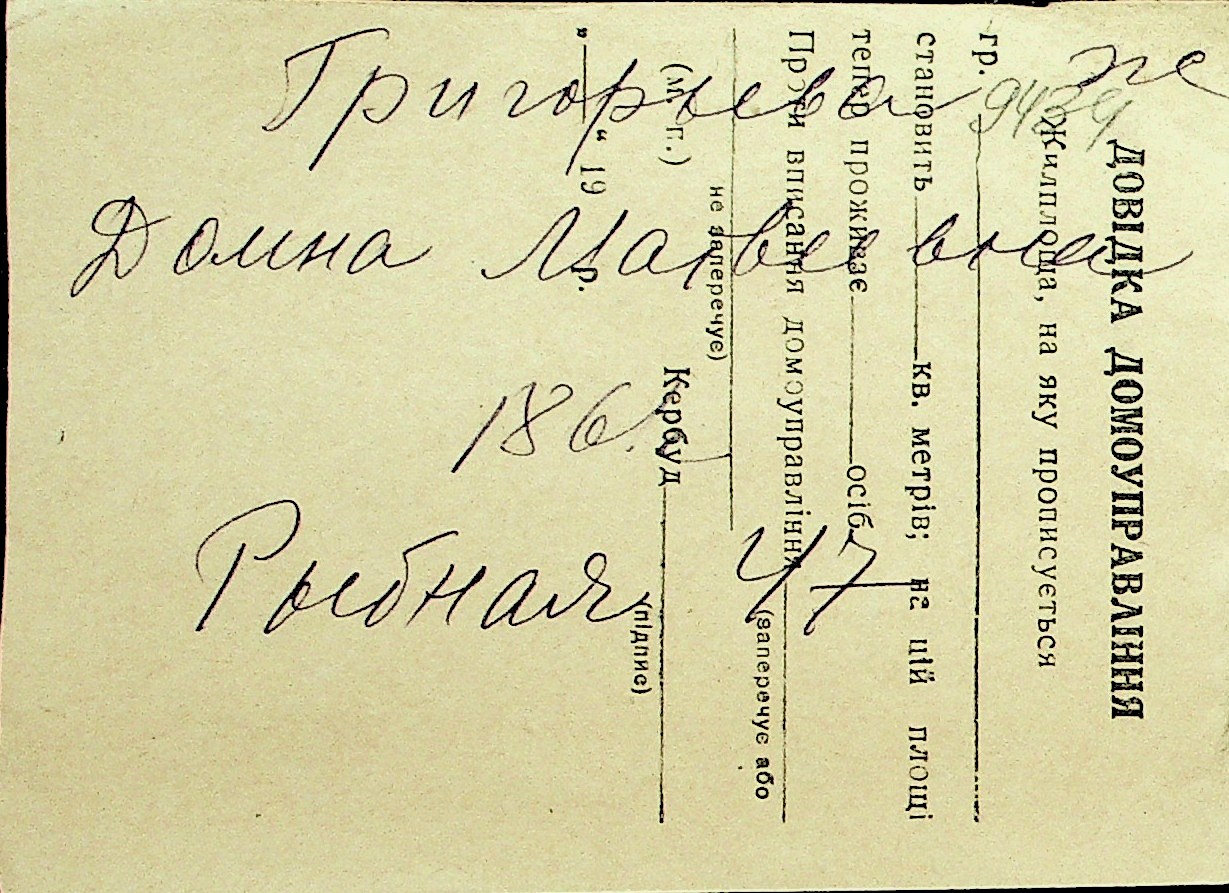 же
9439
Григорьева
Домна Матвеевна
186
Рыбная 47
ДОВІДКА ДОМОУПРАВЛІННЯ
Жилплоща, на яку прописується
гр.
становить кв. метрів; на цій площі
тепер проживає осіб.
Проти вписання домоуправління
(заперечує або
не заперечує)
(м. г.) Кербуд
(підпис)
„ “ 19 р.